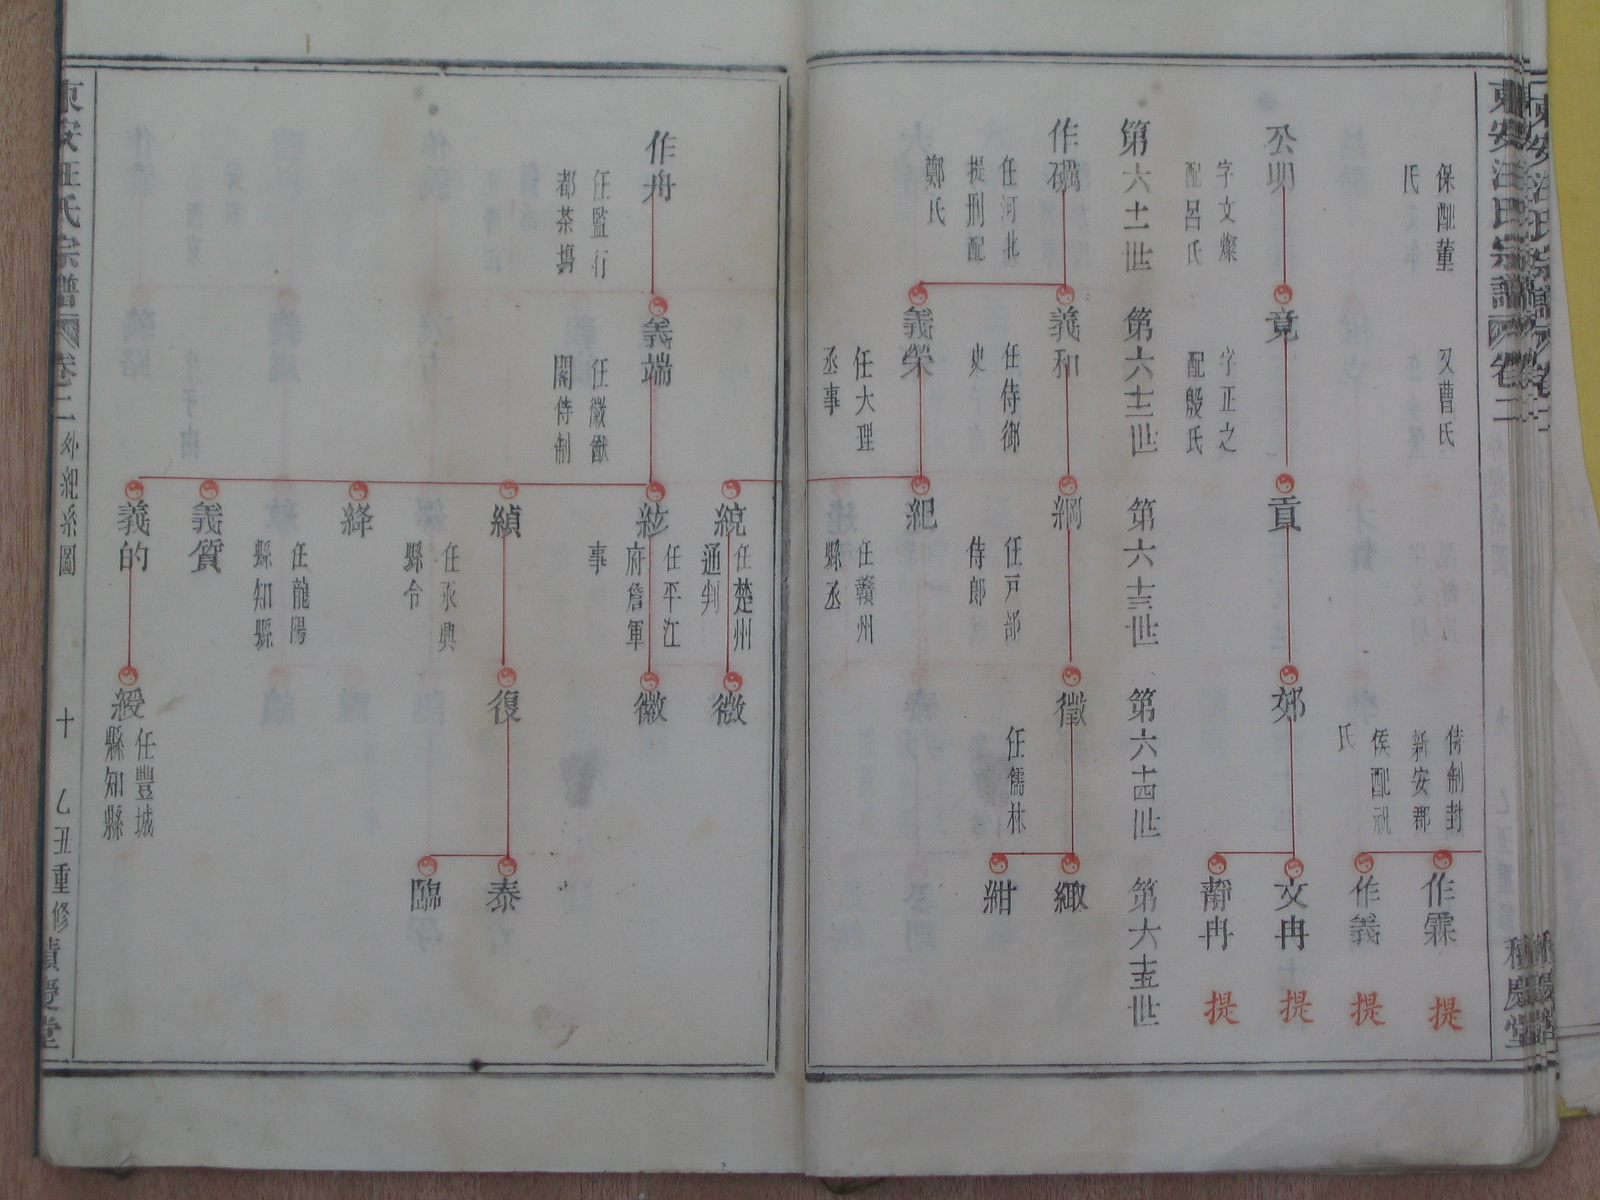 東安汪氏宗譜
卷二
積慶堂
保配董
氏
又曹氏
侍制封
新安郡
侯配祝
氏
作霖
提
作義
提
公明
字文燦
配呂氏
竟
字正之
配殷氏
貢
郊
文冉
提
靜冉
提
第六十一世
第六十二世
第六十三世
第六十四世
第六十五世
作礪
任河北
提刑配
鄭氏
義和
任侍御
史
綱
任戸部
侍郎
徵
任儒林
緅
紺
義榮
任大理
丞事
紀
任贛州
縣丞
統
任楚州
通判
微
作舟
任監行
都茶塲
義端
任徽猷
閣侍制
紘
任平江
府詹軍
事
徽
縝
任永興
縣令
復
泰
臨
絳
任龍陽
縣知縣
義質
義的
緩
任豐城
縣知縣
東安汪氏宗譜
卷二
外紀系圖
十
乙丑重修
積慶堂